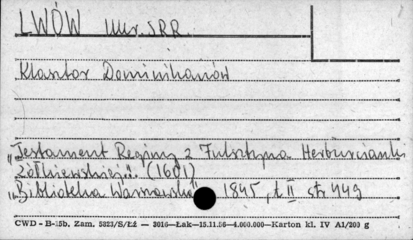 LWÓW Ukr. SRR.
Klasztor Dominikanów
"Testament Reginy z Fulsztyna Herburcianki
Żółkiewskiej". (1601)
"Biblioteka Warszawska" 1845, t. II str. 449
CWD - B-15b. Zam. 5823/S/Łź — 3016—Łak—15.11.56—4.000.000—Karton kl. IV A1/200 g